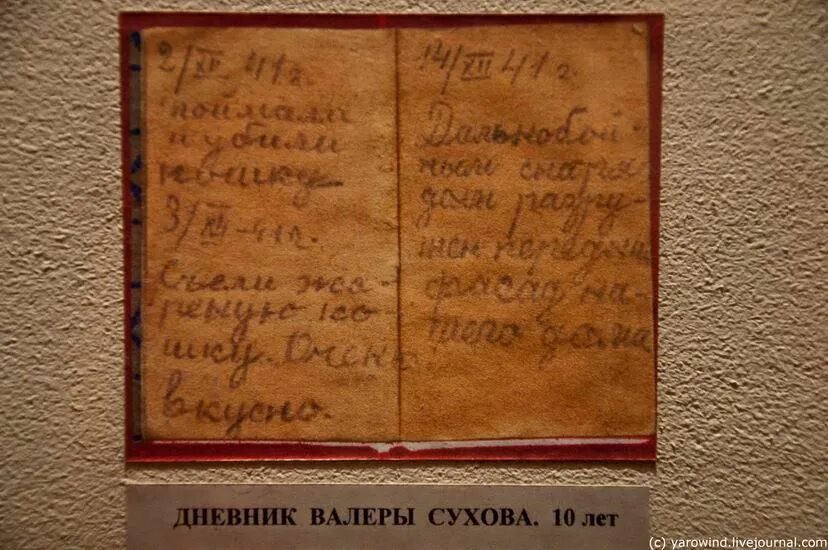 2/XII 41 г.
поймали
и убили
кошку
3/XII-41 г.
Съели жа-
реную ко-
шку. Очень
вкусно.
14/XII 41 г.
Дальнобой-
ным снаря-
дом разру-
шен передний
фасад на-
шего дома
ДНЕВНИК ВАЛЕРЫ СУХОВА. 10 лет
(c) yarowind.livejournal.com